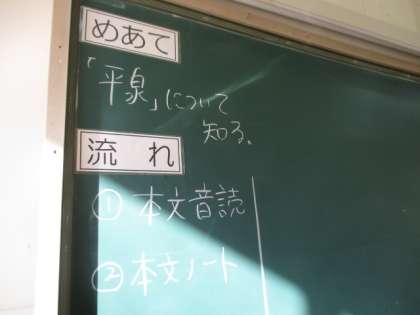 めあて
「平泉」について
知る。
流れ
①本文音読
②本文ノート